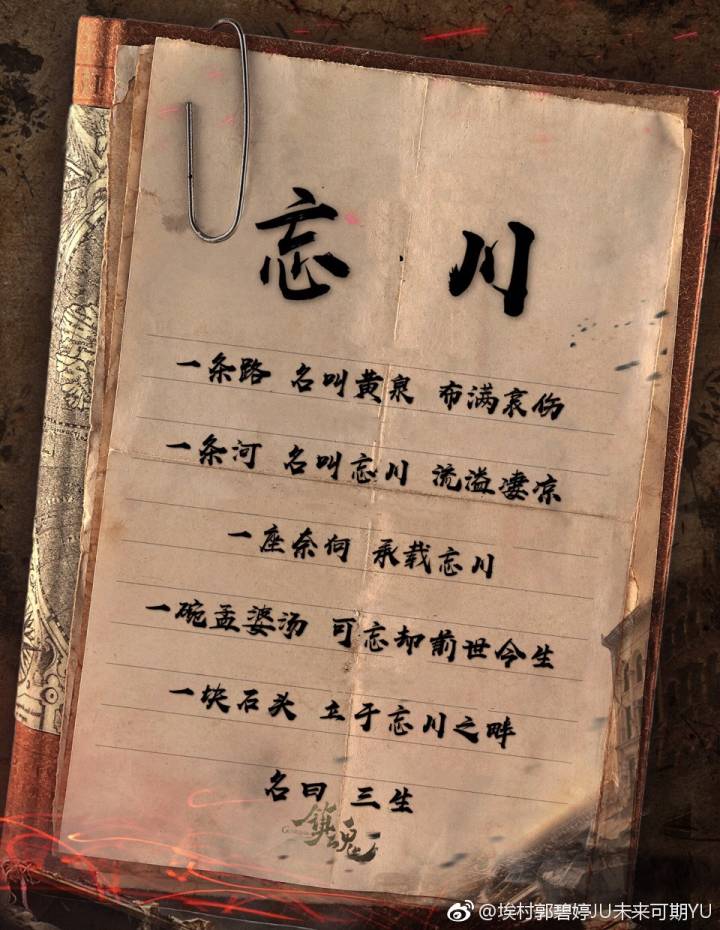 忘川
一条路 名叫黄泉 布满哀伤
一条河 名叫忘川 流溢凄凉
一座奈何 承载忘川
一碗孟婆汤 可忘却前世今生
一块石头 立于忘川之畔
名曰 三生
镇魂
@埃村郭碧婷JU未来可期YU